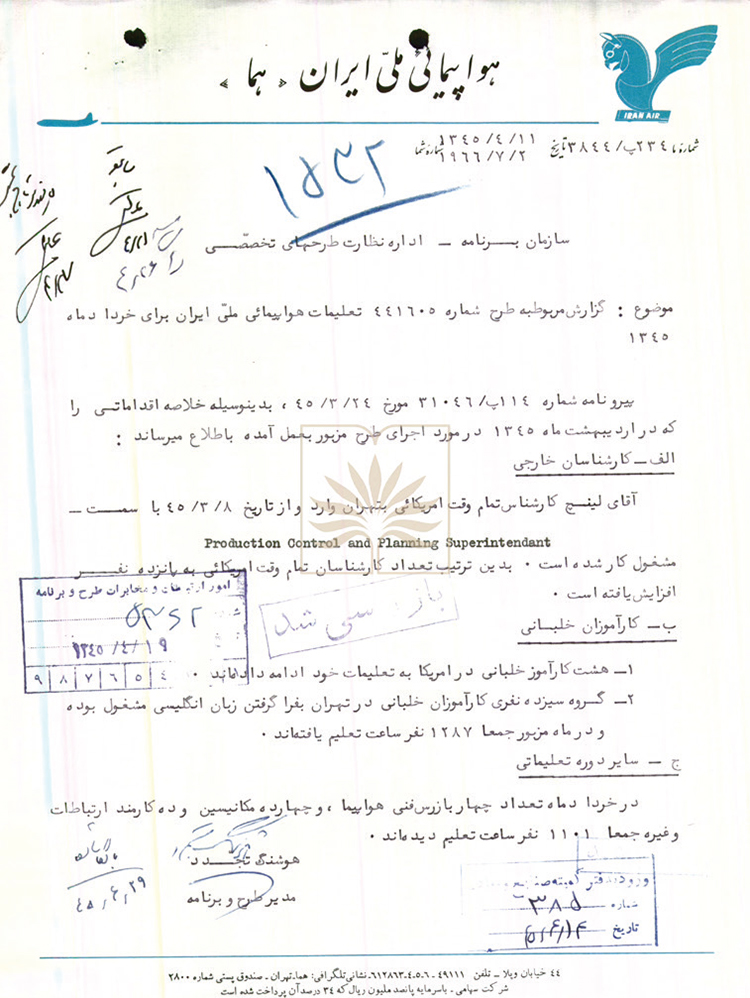 هواپیمائی ملّی ایران «هما»
IRAN AIR
شماره ۲۳۴پ/۳۸۴۴ تاریخ ۱۳۴۵/۴/۱۱ شماره شما
۱۹۶۶/۷/۲
۱۵۳۲
سازمان برنامه ــ اداره نظارت طرحهای تخصصّی
موضوع : گزارش مربوطبه طرح شماره ۴۴۱۶۰۵ تعلیمات هواپیمائی ملّی ایران برای خرداد ماه
۱۳۴۵
پیرو نامه شماره ۱۱۴پ/۳۱۰۴۶ مورخ ۴۵/۳/۲۴ ، بدینوسیله خلاصه اقداماتی را
که در اردیبهشت ماه ۱۳۴۵ در مورد اجرای طرح مزبور بعمل آمده باطلاع میرساند :
الف ــ کارشناسان خارجی
آقای لینچ کارشناس تمام وقت امریکائی بتهران وارد و از تاریخ ۴۵/۳/۸ با سمت ــ
Production Control and Planning Superintendant
مشغول کار شده است ۰ بدین ترتیب تعداد کارشناسان تمام وقت امریکائی به پانزده نفر
افزایش یافته است ۰
امور ارتباطات و مخابرات طرح و برنامه
۱۳۴۵/۴/۱۹
۹ ۸ ۷ ۶ ۵ ۴
بازرسی شد
ب ــ کارآموزان خلبانی
۱ــ هشت کارآموز خلبانی در امریکا به تعلیمات خود ادامه داده‌اند ۰
۲ــ گروه سیزده نفری کارآموزان خلبانی در تهران بفرا گرفتن زبان انگلیسی مشغول بوده
و در ماه مزبور جمعا ۱۲۸۷ نفر ساعت تعلیم یافته‌اند ۰
ج ــ سایر دوره تعلیماتی
در خرداد ماه تعداد چهار بازرس فنی هواپیما ، و چهارده مکانیسین و ده کارمند ارتباطات
وغیره جمعا ۱۱۰۱ نفر ساعت تعلیم دیده‌اند ۰
هوشنگ تجدد
مدیر طرح و برنامه
۴۵/۴/۲۹
ورود بدفتر کمیته صنایع و معادن
شماره ۳۸۵
تاریخ ۴۵/۴/۱۴
۴۴ خیابان ویلا ــ تلفن ۴۹۱۱۱ ــ ۶ــ۵ــ۴ــ۶۱۲۸۶۳ نشانی تلگرافی: هما.تهران ــ صندوق پستی شماره ۲۸۰۰
شرکت سهامی ــ باسرمایه پانصد ملیون ریال که ۳۴ درصد آن پرداخت شده است